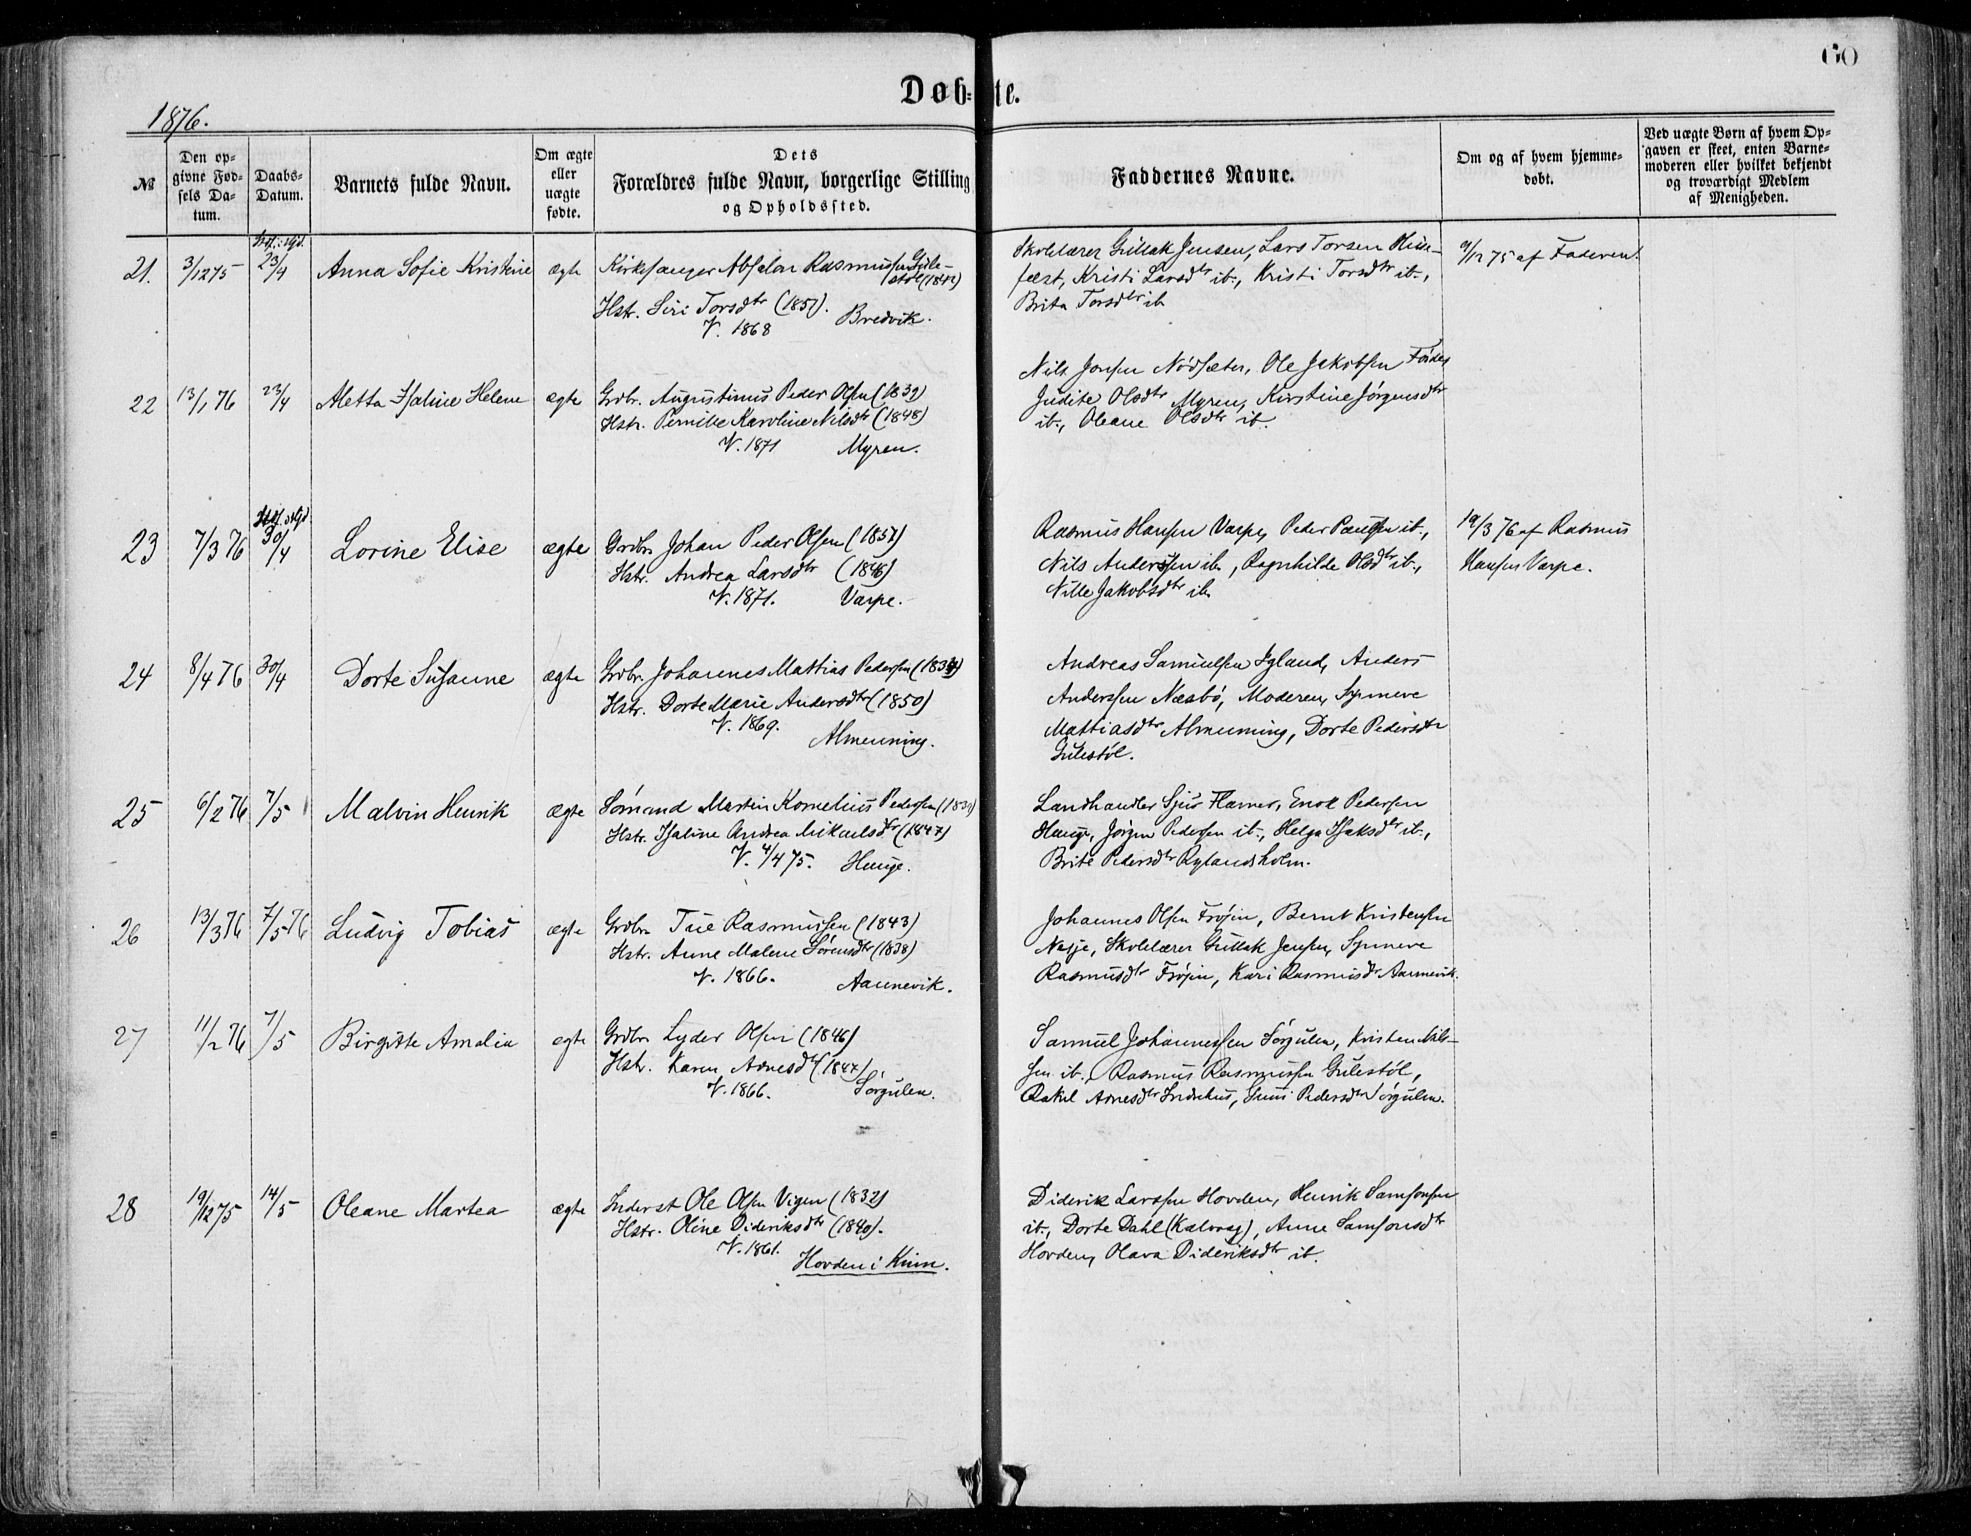 60
Døb-te.
1876.
№
Den op-
givne Fød-
sels Da-
tum.
Daabs-
Datum.
Barnets fulde Navn.
Om ægte
eller
uægte
fødte.
Dets
Forældres fulde Navn, borgerlige Stilling
og Opholdssted.
Faddernes Navne.
Om og af hvem hjemme-
døbt.
Ved uægte Børn af hvem Op-
gaven er skeet, enten Barne-
moderen eller hvilket bekjendt
og troværdigt Medlem
af Menigheden.
21. 3/12 75 23/4 Anna Sofie Kristine ægte Kirkesanger Absalon Rasmussen Gule-
støl (1842)
Hstr. Siri Torsdtr (1851).
V. 1868 Bredvik.
Skolelærer Gullak Jensen, Lars Torsen Huse-
fæst, Kristi Larsdtr ib., Kristi Torsdtr ib.,
Brita Torsdtr ib.
9/12 75 af Faderen.
22 13/1 76 23/4 Aletta Isaline Helene ægte Grdbr. Augustinus Peder Olsen (1839)
Hstr. Pernille Karoline Nilsdtr (1848)
V. 1871 Myren.
Nils Jonsen Nødsæter, Ole Jakobsen Førde,
Judite Olsdtr Myren, Kirstine Jørgensdtr
ib., Oleane Olsdtr ib.
23 7/3 76 30/4 Lorine Elise ægte Grdbr. Johan Peder Olsen (1851)
Hstr. Andrea Larsdtr (1846)
V. 1871. Varpe.
Rasmus Hansen Varpe, Peder Paulsen ib.,
Nils Anderssen ib., Ragnhilde Olsdtr ib.,
Nille Jakobsdtr ib.
19/3 76 af Rasmus
Hansen Varpe.
24 8/4 76 30/4 Dorte Susanne ægte Grdbr. Johannes Mattias Pedersen
Hstr. Dorte Marie Andersdtr (1850)
V. 1869.
Almenning.
Andreas Samuelsen Igland, Anders
Anderssen Næsbø, Moderen, Synneve
Mattiasdtr Almenning, Dorte Pedersdtr
Gulestøl.
25 6/2 76 7/5 Malvin Henrik ægte Sømand Martin Kornelius Pedersen
Hstr. Isaline Andrea Mikaelsdtr (1847)
V. 4/4 75. Hauge.
Landhandler Sjur Hamer, Enok Pedersen
Hauge, Jørgen Pedersen ib., Helga Isaksdtr ib.,
Brite Pedersdtr Rylandsholm.
26 13/3 76 7/5 76 Ludvig Tobias ægte Grdbr. Tue Rasmussen (1843)
Hstr. Anne Malene Sørensdtr (1838)
V. 1866. Aannevik.
Johannes Olsen Frøjen, Bernt Kristensen
Nesje, Skolelærer Gullak Jensen, Synneve
Rasmusdtr Frøjen, Kari Rasmusdtr Aannevik.
27 11/2 76 7/5 Birgitte Amalia ægte Grdbr. Lyder Olsen (1846)
Hstr. Karen Arnesdtr (1847)
V. 1866. Sørgulen.
Samuel Johannessen Sørgulen, Kristen Nils-
sen ib., Rasmus Rasmussen Gulestøl,
Rakel Arnesdtr Indrehus, Guni Pedersdtr Sørgulen.
28 19/12 75 14/5 Oleane Martea ægte Inderst Ole Olsen Vigen (1832)
Hstr. Oline Dideriksdtr (1840).
V. 1861.
Hovden i Kinn.
Diderik Larssen Hovden, Henrik Samsonsen
ib., Dorte Dahl (Kalvaag), Anne Samsonsdtr
Hovden, Olava Dideriksdtr ib.